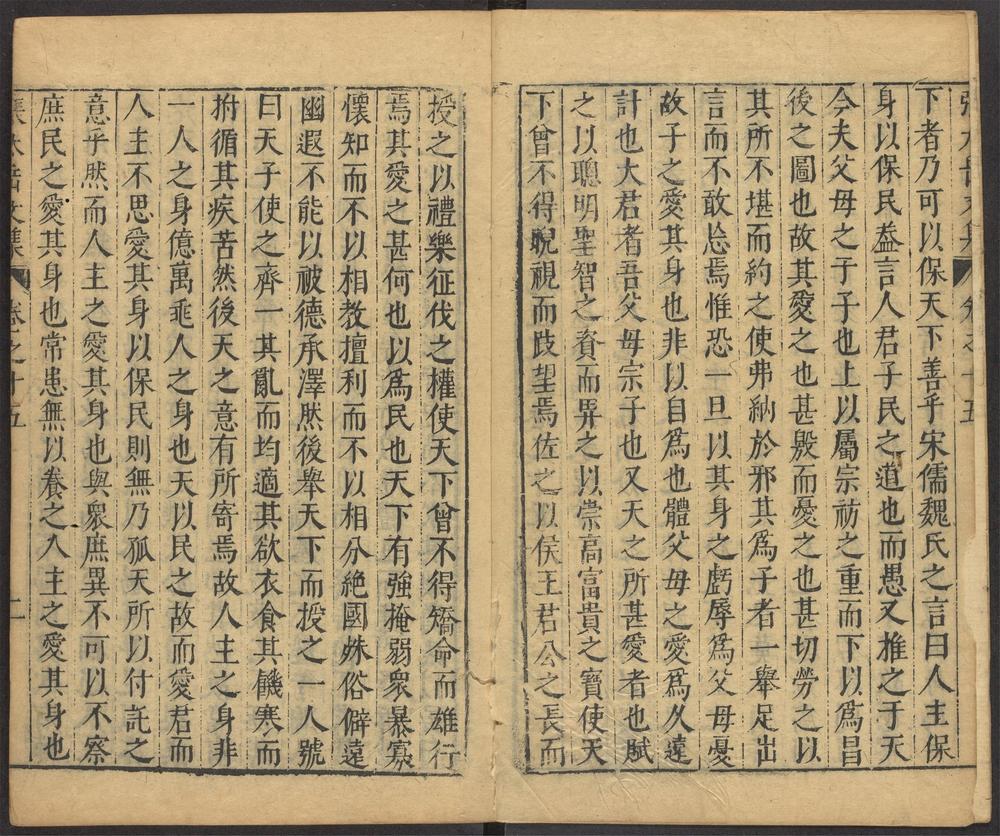 張太岳文集 卷之十五
下者乃可以保天下善乎宋儒魏氏之言曰人主保
身以保民葢言人君子民之道也而愚又推之于天
今夫父母之于子也上以屬宗祊之重而下以爲昌
後之圖也故其愛之也甚殷而憂之也甚切勞之以
其所不堪而約之使弗納於邪其爲子者一舉足出
言而不敢忩焉惟恐一旦以其身之虧辱爲父母憂
故子之愛其身也非以自爲也體父母之愛爲久遠
計也大君者吾父母宗子也又天之所甚愛者也賦
之以聰明聖智之資而畀之以崇高富貴之寶使天
下曾不得睨視而跂望焉佐之以侯王君公之長而
授之以禮樂征伐之權使天下曾不得矯命而雄行
焉其愛之甚何也以爲民也天下有強掩弱衆暴寡
懷知而不以相教擅利而不以相分絶國殊俗僻遠
幽遐不能以被德承澤然後舉天下而授之一人號
曰天子使之齊一其亂而均適其欲衣食其饑寒而
拊循其疾苦然後天之意有所寄焉故人主之身非
一人之身億萬乖人之身也天以民之故而愛君而
人主不思愛其身以保民則無乃孤天所以付託之
意乎然而人主之愛其身也與衆庶異不可以不察
庶民之愛其身也常患無以養之人主之愛其身也
張太岳文集 卷之十五 二